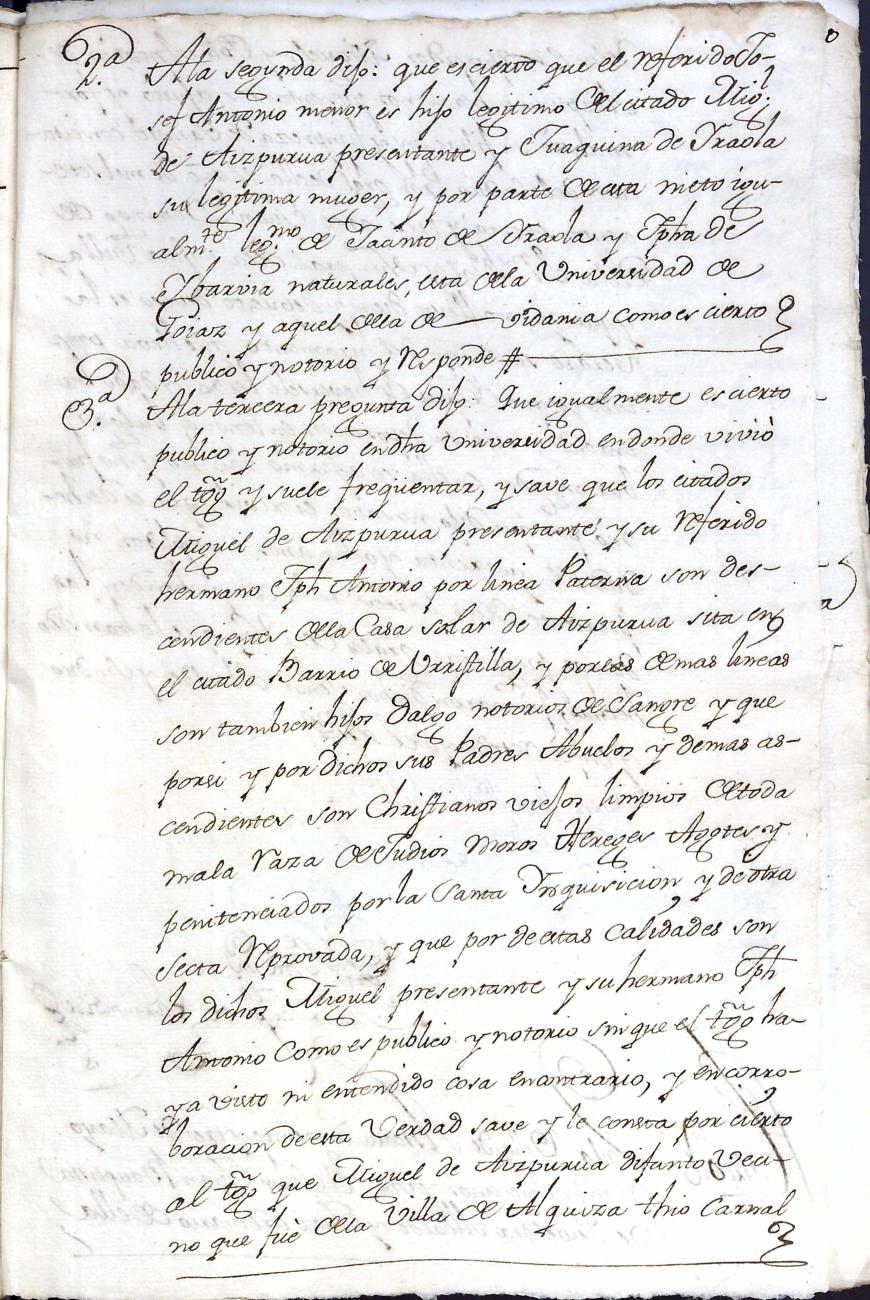 2.ª Ala segunda dijo: que es cierto que el referido Jo-
sef Antonio menor es hijo legitimo del citado Mig.l
de Aizpurua presentante y Juaquina de Yraola
su legitima muger, y por parte de esta nieto igu-
alm.te leg.mo de Jacinto de Yraola y Jpha de
Ybarvia naturales, esta dela Universidad de
Goiaz y aquel dela de Vidania como es cierto
publico y notorio y responde #
3.ª Ala tercera pregunta dijo: Que igualmente es cierto
publico y notorio en dha Universidad en donde vivió
el tgõ y suele freqüentar, y save que los citados
Miguel de Aizpurua presentante y su referido
hermano Jph Antonio por linea Paterna son des-
cendientes dela Casa solar de Aizpurua sita en
el citado Barrio de Urristilla, y por las demas lineas
son tambien hijos dalgo notorios de Sangre y que
por si y por dichos sus Padres Abuelos y demas as-
cendientes son Christianos viejos limpios de toda
mala raza de Judios Moros Hereges Agotes y
penitenciados por la Santa Ynquisicion y de otra
secta reprovada, y que por de estas calidades son
los dichos Miguel presentante y su hermano Jph
Antonio como es publico y notorio sin que el tgõ ha-
ya visto ni entendido cosa en contrario, y en corro-
boracion de esta Verdad save y le consta por cierto
al tgõ que Miguel de Aizpurua difunto Veci-
no que fué dela Villa de Alquiza thio Carnal